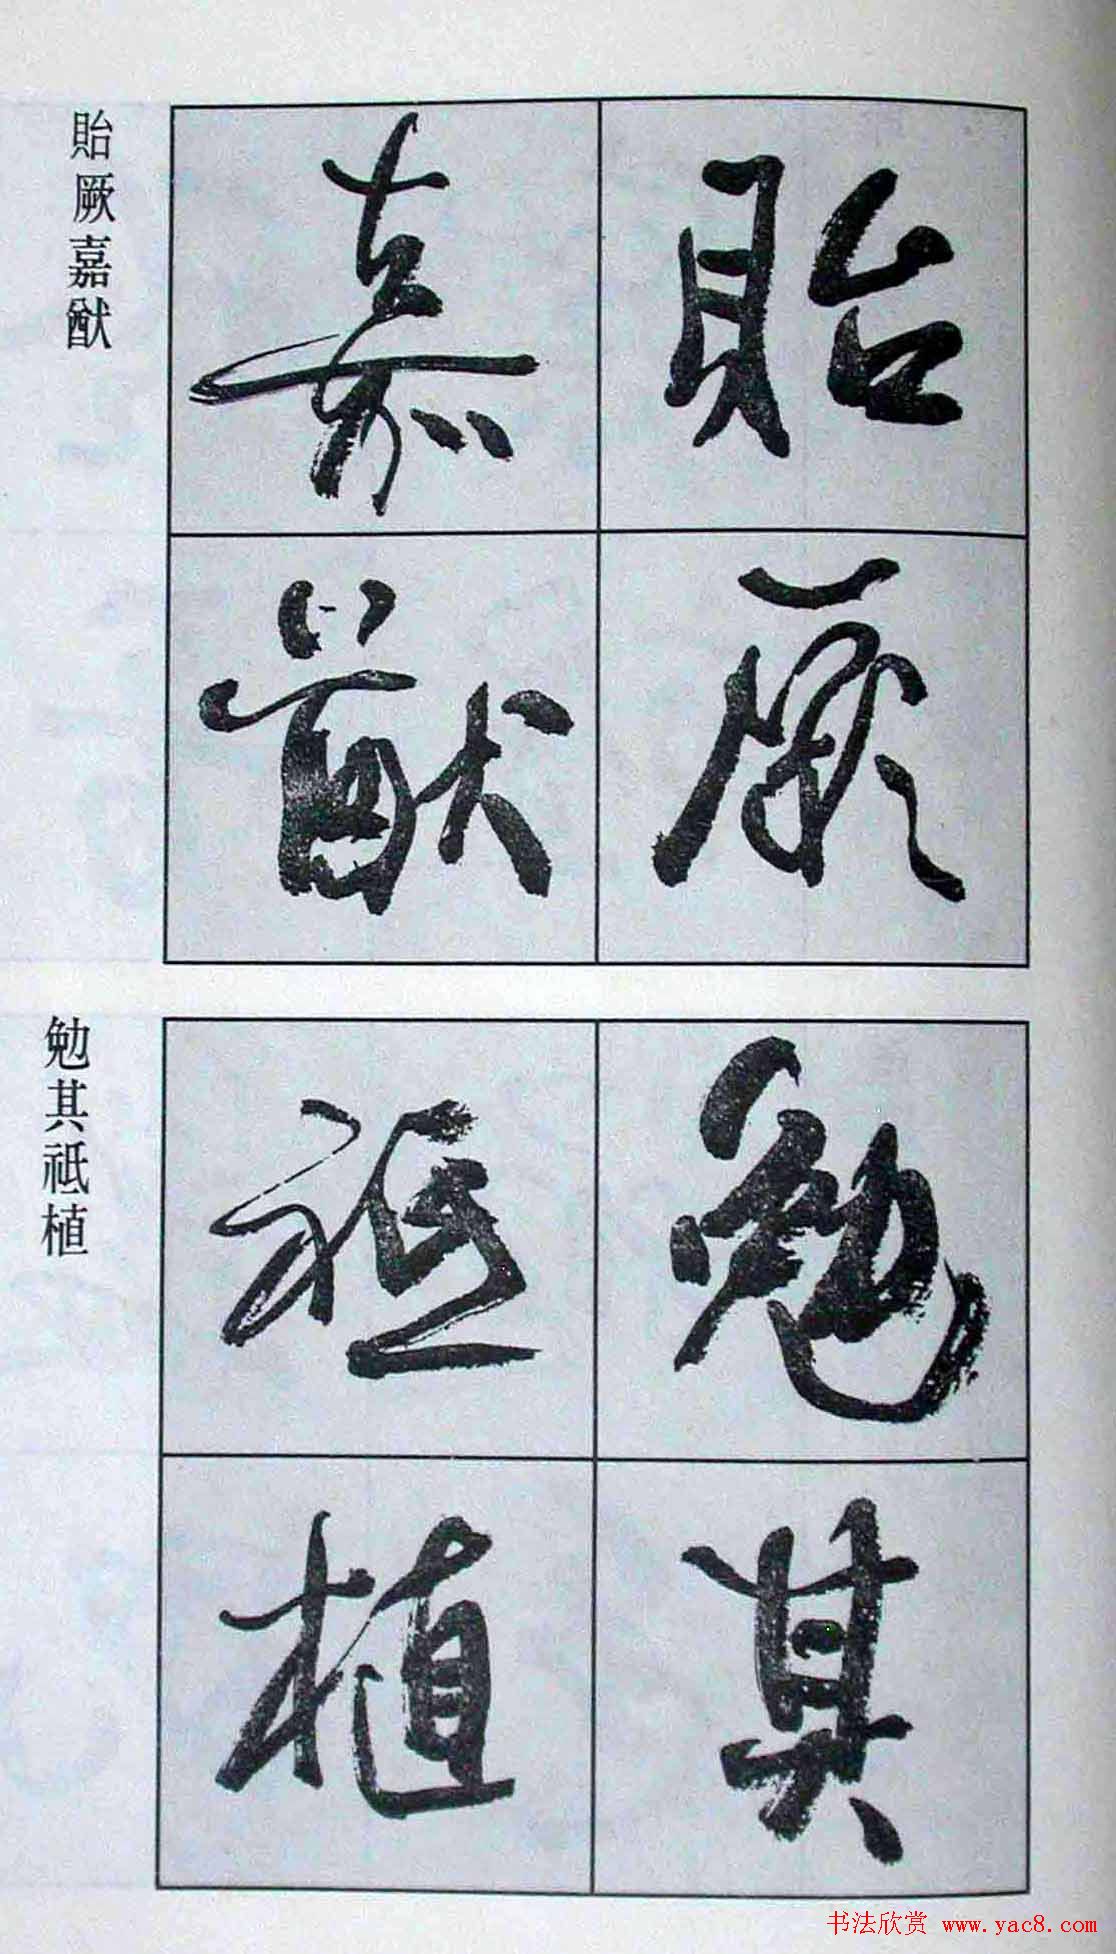 貽厥
嘉猷
貽厥嘉猷
勉其
祗植
勉其祗植
书法欣赏 www.yac8.com